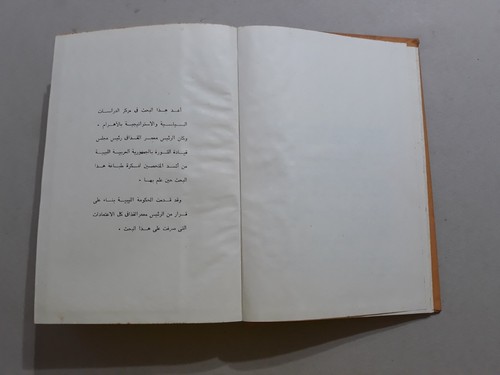 أعد هذا البحث في مركز الدراسات
السياسية والاستراتيجية بالاهرام .
وكان الرئيس معمر القذافي رئيس مجلس
قيادة الثورة بالجمهورية العربية الليبية
من أشد المتحمسين لفكرة طباعة هذا
البحث حين علم بها .
وقد قدمت الحكومة الليبية بناء على
قرار من الرئيس معمر القذافي كل الاعتمادات
التى صرفت على هذا البحث .